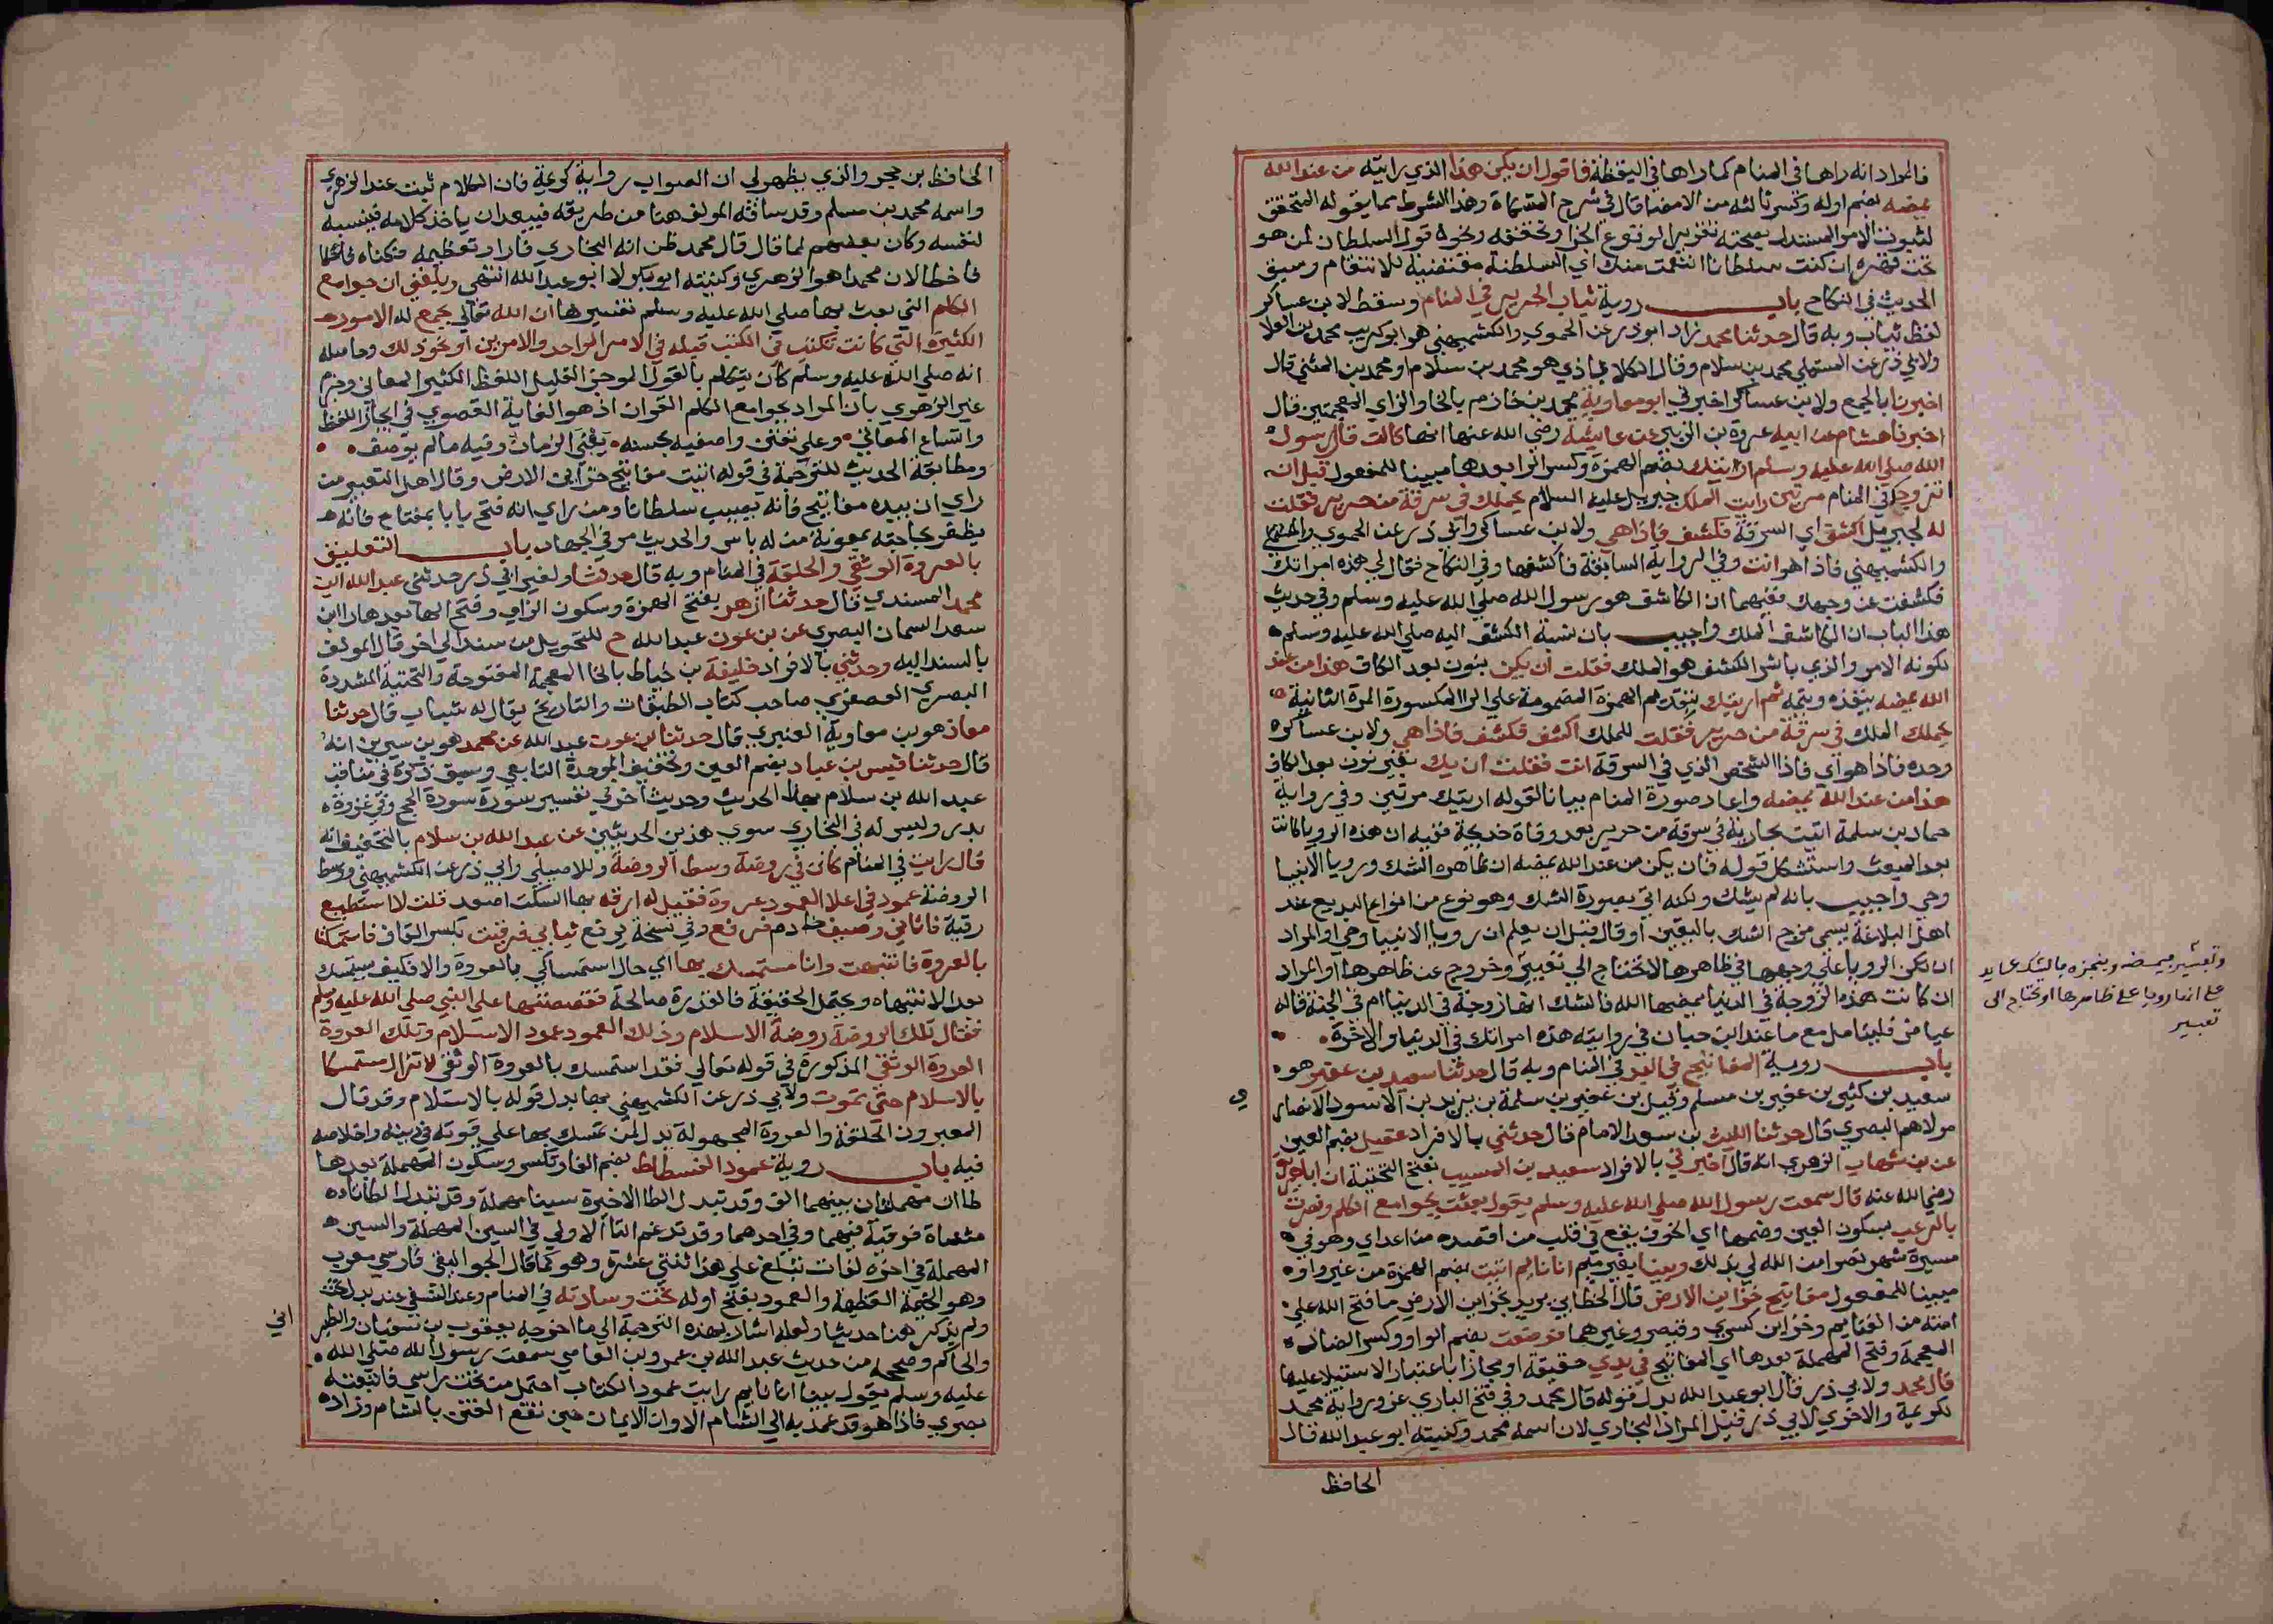 فالمراد انه راها في المنام كما راها في اليقظة فاقول ان يكن هذا الذي رايته من عند الله
يمضه بضم اوله وكسر ثالثه من الامضا قال في شرح المشكاة وهذا الشرط مما يقوله المتحقق
لثبوت الامر المستدل بصحته تقريرا لوقوع الجزا وتحققه ونحوه قول السلطان لمن هو
تحت قهره ان كنت سلطانا انتقمت منك اي السلطنة مقتضية للانتقام وسبق
الحديث في النكاح باب روية ثياب الحرير في المنام وسقط لابن عساكر
لفظ ثياب وبه قال حدثنا محمد زاد ابوذر عن الحموي والكشميهني هو ابوكريب محمد بن العلا
ولابي ذر عن المستملي محمد بن سلام وقال الكلاباذي هو محمد بن سلام او محمد بن المثني قال
اخبرنا بالجمع ولابن عساكر اخبرني ابو معاوية محمد بن خازم بالخا والزاي المعجمتين قال
اخبرنا هشام عن ابيه عروة بن الزبير عن عايشة رضي الله عنها انها قالت قال رسول
الله صلي الله عليه وسلم اريتك بضم الهمزة وكسر الرا بعدها مبينا للمفعول قبل ان
اتزوجك في المنام مرتين رايت الملك جبريل عليه السلام يحملك في سرقة من حرير فقلت
له لجبريل اكشف اي السرقة فكشف فاذا هي ولابن عساكر وابي ذر عن الحموي
والكشميهني فاذا هو انت وفي الرواية السابقة فاكشفها وفي النكاح فقال لي هذه امراتك
فكشفت عن وجهك ففيهما ان الكاشف هو رسول الله صلي الله عليه وسلم وفي حديث
هذا الباب ان الكاشف الملك واجيب بان نسبة الكشف اليه صلي الله عليه وسلم
لكونه الامر والذي باشر الكشف هو الملك فقلت ان يكن بنون بعد الكاف هذا من عند
الله يمضه ينفذه ويتمه ثم اريتك بتقديم الهمزة المضمومة علي الرا المكسورة المرة الثانية
يحملك الملك في سرقة من حرير فقلت للملك اكشف فكشف فاذا هي ولابن عساكر
وحده فاذا هو اي فاذا الشخص الذي في السرقة انت فقلت ان يك بغير نون بعد الكاف
هذا من عند الله يمضه واعاد صورة المنام بيانا لقوله اريتك مرتين وفي رواية
حماد بن سلمة اتيت بجارية في سرقة من حرير بعد وفاة خديجة ففيه ان هذه الرويا كانت
بعد المبعث واستشكل قوله فان يكن من عند الله يمضه ان ظاهره الشك ورويا الانبيا
وحي واجيب بانه لم يشك ولكنه اتي بصورة الشك وهو نوع من انواع البديع عند
اهل البلاغة يسمي مزج الشك باليقين او قال قبل ان يعلم ان رويا الانبيا وحي او المراد
ان تكن الرويا علي وجهها في ظاهرها لا تحتاج الي تعبير وخروج عن ظاهرها او المراد
ان كانت هذه الزوجة في الدنيا يمضيها الله فالشك انها زوجة في الدنيا ام في الجنة قاله
عياض فليتامل مع ما عند ابن حبان في روايته هذه امراتك في الدنيا والاخرة
باب روية المفاتيح في اليد في المنام وبه قال حدثنا سعيد بن عفير هو
سعيد بن كثير بن عفير بن مسلم وقيل بن عفير بن سلمة بن يزيد بن الاسود الانصاري
مولاهم البصري قال حدثنا الليث بن سعد الامام قال حدثني بالافراد عقيل بضم العين
عن بن شهاب الزهري انه قال اخبرني بالافراد سعيد بن المسيب بفتح التحتية ان ابا هريرة
رضي الله عنه قال سمعت رسول الله صلي الله عليه وسلم يقول بعثت بجوامع الكلم ونصرت
بالرعب بسكون العين وضمها اي الخوف يقع في قلب من اقصده من اعداي وهو في
مسيرة شهر نصرا من الله لي بذلك وبينا بغير ميم انا نايم اتيت بضم الهمزة من غير واو
مبينا للمفعول مفاتيح خزاين الارض قال الخطابي يريد بخزاين الارض ما فتح الله علي
امته من الغنايم وخزاين كسري وقيصر وغيرهما فوضعت بضم الواو وكسر الضاد
المعجمة وفتح المهملة بعدها اي المفاتيح في يدي حقيقة او مجازا باعتبار الاستيلا عليها
قال محمد ولابي ذر قال ابو عبد الله بدل قوله قال محمد وفي فتح الباري عزو رواية محمد
لكريمة والاخري لابي ذر قيل المراد البخاري لان اسمه محمد وكنيته ابو عبد الله قال
الحافظ
علي انها رويا علي ظاهرها او تحتاج الي
تعبير
الحافظ بن حجر والذي يظهر لي ان الصواب رواية كريمة فان الكلام ثبت عند الزهري
واسمه محمد بن مسلم وقد ساقه المولف هنا من طريقه فيبعد ان ياخذ كلامه فينسبه
لنفسه وكان بعضهم لما قال قال محمد ظن انه البخاري فاراد تعظيمه فكناه فاخطا
فاخطا لان محمدا هو الزهري وكنيته ابوبكر لا ابو عبد الله انتهي وبلغني ان جوامع
الكلم التي بعث بها صلي الله عليه وسلم تفسيرها ان الله تعالي يجمع له الامور
الكثيرة التي كانت تكتب في الكتب قبله في الامر الواحد والامرين او نحو ذلك وحاصله
انه صلي الله عليه وسلم كان يتكلم بالقول الموجز القليل اللفظ الكثير المعاني وجزم
غير الزهري بان المراد بجوامع الكلم القران اذ هو الغاية القصوي في ايجاز اللفظ
واتساع المعاني وعلي تفنن واصفيه بحسنه يفني الزمان وفيه ما لم يوصف
ومطابقة الحديث للترجمة في قوله اتيت مفاتيح خزاين الارض وقال اهل التعبير من
راي ان بيده مفاتيح فانه يصيب سلطانا ومن راي انه فتح بابا بمفتاح فانه
يظفر بحاجته بمعونة من له باس والحديث مر في الجهاد باب التعليق
بالعروة الوثقي والحلقة في المنام وبه قال حدثنا ولغير ابي ذر حدثني عبد الله ابن
محمد المسندي قال حدثنا ازهر بفتح الهمزة وسكون الزاي وفتح الها بعدها را ابن
سعد السمان البصري عن بن عون عبد الله ح للتحويل من سند الي اخر قال المولف
بالسند اليه وحدثني بالافراد خليفة بن خياط بالخا المعجمة المفتوحة والتحتية المشددة
البصري العصفري صاحب كتاب الطبقات والتاريخ يقال له شباب قال حدثنا
معاذ هو بن معاوية العنبري قال حدثنا ابن عون عبد الله عن محمد هو بن سيرين انه
قال حدثنا قيس بن عباد بضم العين وتخفيف الموحدة التابعي وسبق ذكره في مناقب
عبد الله بن سلام بهذا الحديث وحديث اخر في تفسير سورة الحج وفي غزوة
بدر وليس له في البخاري سوي هذين الحديثين عن عبد الله بن سلام بالتخفيف انه
قال رايت في المنام كاني في روضة وسط الروضة وللاصيلي وابي ذر عن الكشميهني ووسط
الروضة عمود في اعلا العمود عروة فقيل له ارقه بها السكت اصعد قلت لا استطيع
رقية فاتاني وصيف خادم فرفع وفي نسخة يرفع ثيابي فرقيت بكسر القاف فاستمسكت
بالعروة فانتبهت وانا مستمسك بها اي حال استمساكي بالعروة والا فكيف يستمسك
بعد الانتباه ويحتمل الحقيقة فالقدرة صالحة فقصصتها علي النبي صلي الله عليه وسلم
فقال تلك الروضة روضة الاسلام وذلك العمود عمود الاسلام وتلك العروة
العروة الوثقي المذكورة في قوله تعالي فقد استمسك بالعروة الوثقي لا تزال مستمسكا
بالاسلام حتي تموت ولابي ذر عن الكشميهني بها بدل قوله بالاسلام وقد قال
المعبرون الحلقة والعروة المجهولة يدل لمن تمسك بها علي قوته في دينه واخلاصه
فيه باب روية عمود الفسطاط بضم الفا وتكسر وسكون المهملة بعدها
طاان مهملتان بينهما الف وقد تبدل الطا الاخيرة سينا مهملة وقد تبدل الطا تا
مثناة فوقية فيهما وفي احدهما وقد تدغم التا الاولي في السين المهملة والسين
المهملة في اخره لغات تبلغ علي هذا اثنتي عشرة وهو كما قال الجواليقي فارسي معرب
وهو الخيمة العظيمة والعمود بفتح اوله تحت وسادته في المنام وعند النسفي عند بدل تحت
ولم يذكر هنا حديثا ولعله اشار بهذه الترجمة الي ما اخرجه يعقوب بن سفيان والطبراني
والحاكم وصححه من حديث عبد الله بن عمرو بن العاصي سمعت رسول الله صلي الله
عليه وسلم يقول بينا انا نايم رايت عمود الكتاب احتمل من تحت راسي فاتبعته
بصري فاذا هو قد عمد به الي الشام الا وان الايمان حين تقع الفتن بالشام وزاد